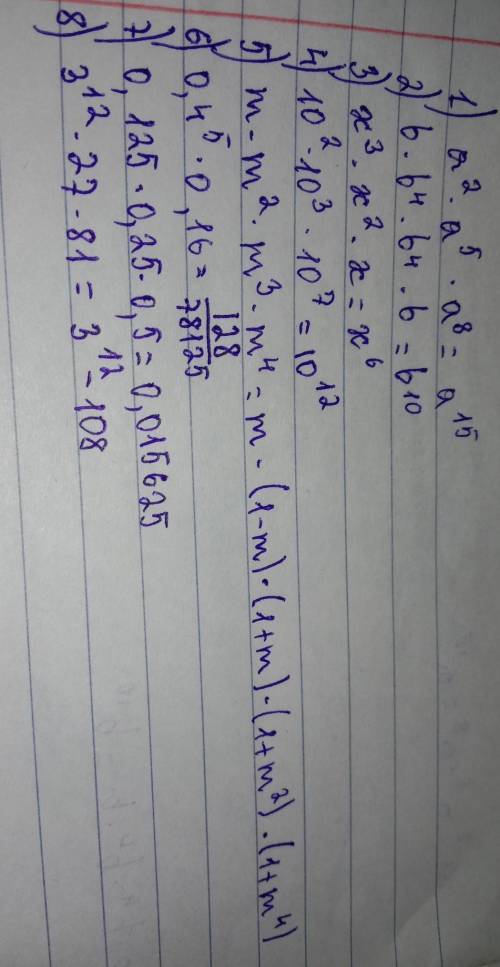 1) a² · a⁵ · a⁸ = a¹⁵
2) b · b⁴ · b⁴ · b = b¹⁰
3) x³ · x² · x = x⁶
4) 10² · 10³ · 10⁷ = 10¹²
5) m - m² · m³ · m⁴ = m - (1-m) · (1+m) - (1+m²) · (1+m⁴)
6) 0,4⁵ · 0,16 = 128/78125
7) 0,125 · 0,25 · 0,5 = 0,015625
8) 3¹² · 27 - 81 = 3¹² - 108